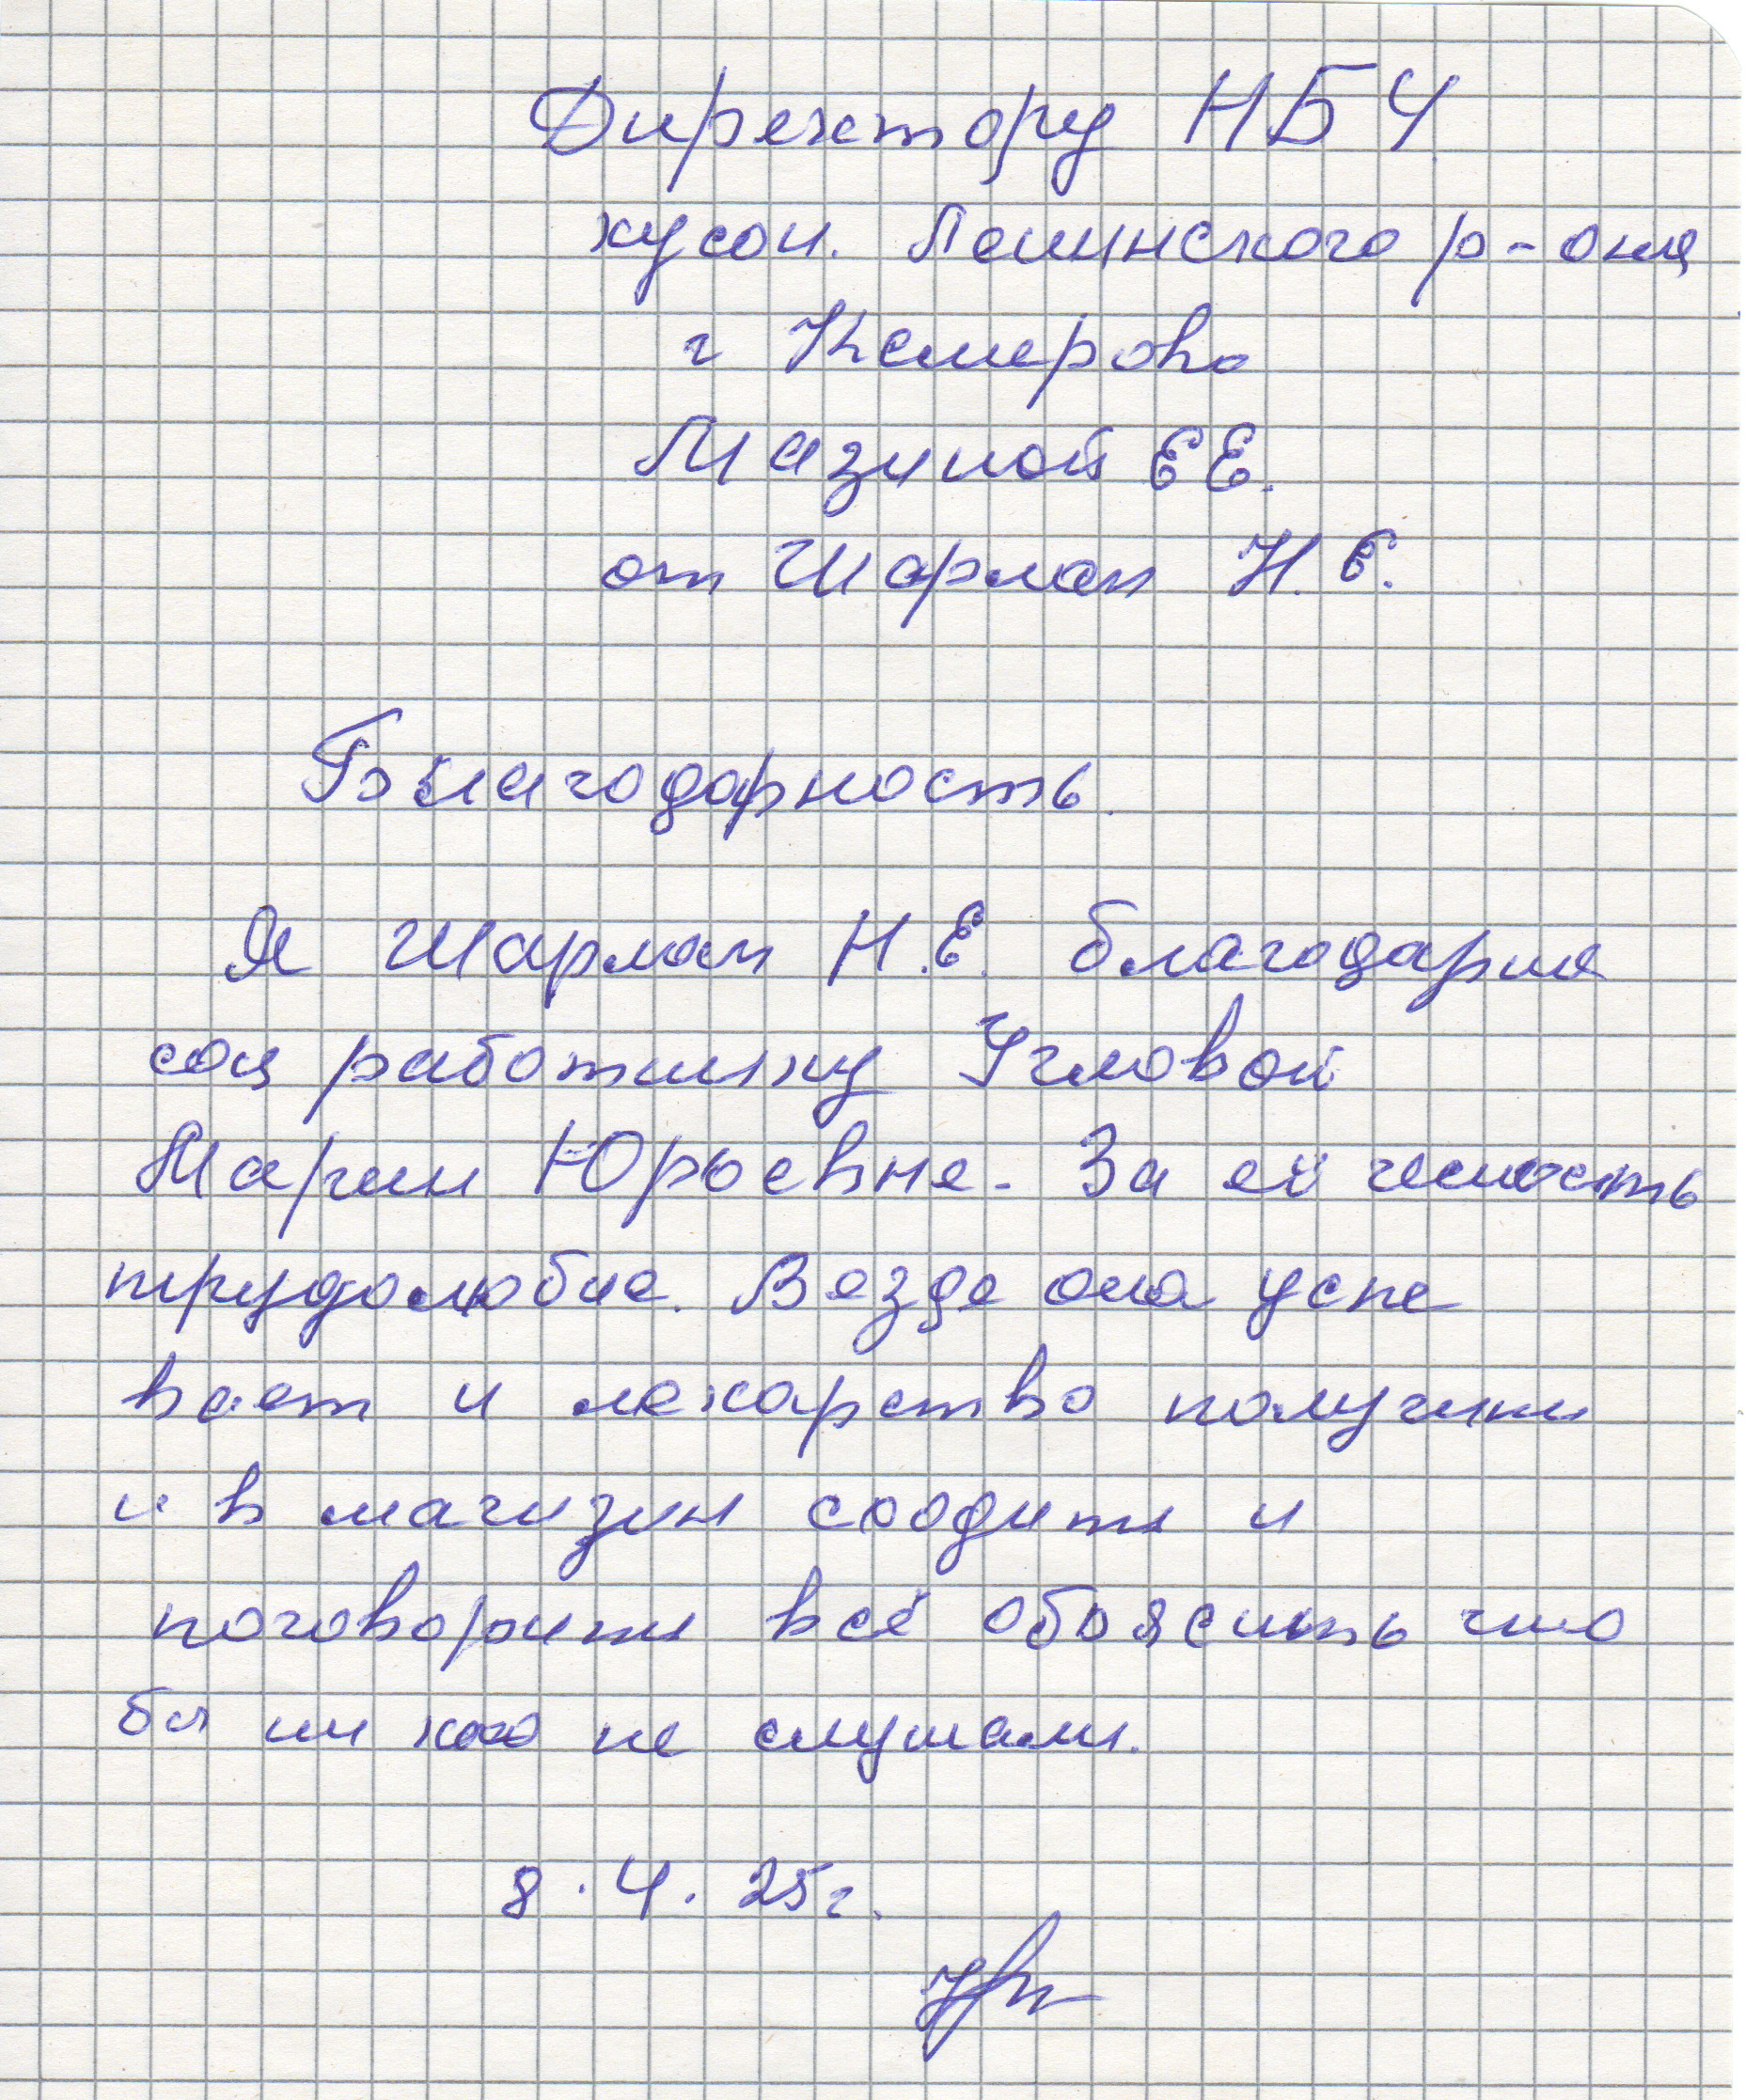 Директору НБУ
кусон. Ленинского р-она
г Кемерово
Мазиной ЕЕ.
от Шарлап Н.Е.
Благодарность.
Я Шарлап Н.Е. благодарна
соц работнику Угловой
Марии Юрьевне. За её чесность
трудолюбие. Везде она успе
вает и лекарство получить
и в магизин сходить и
поговорить всё обьяснить что
бы ни кого не слушали.
8.4.25г.